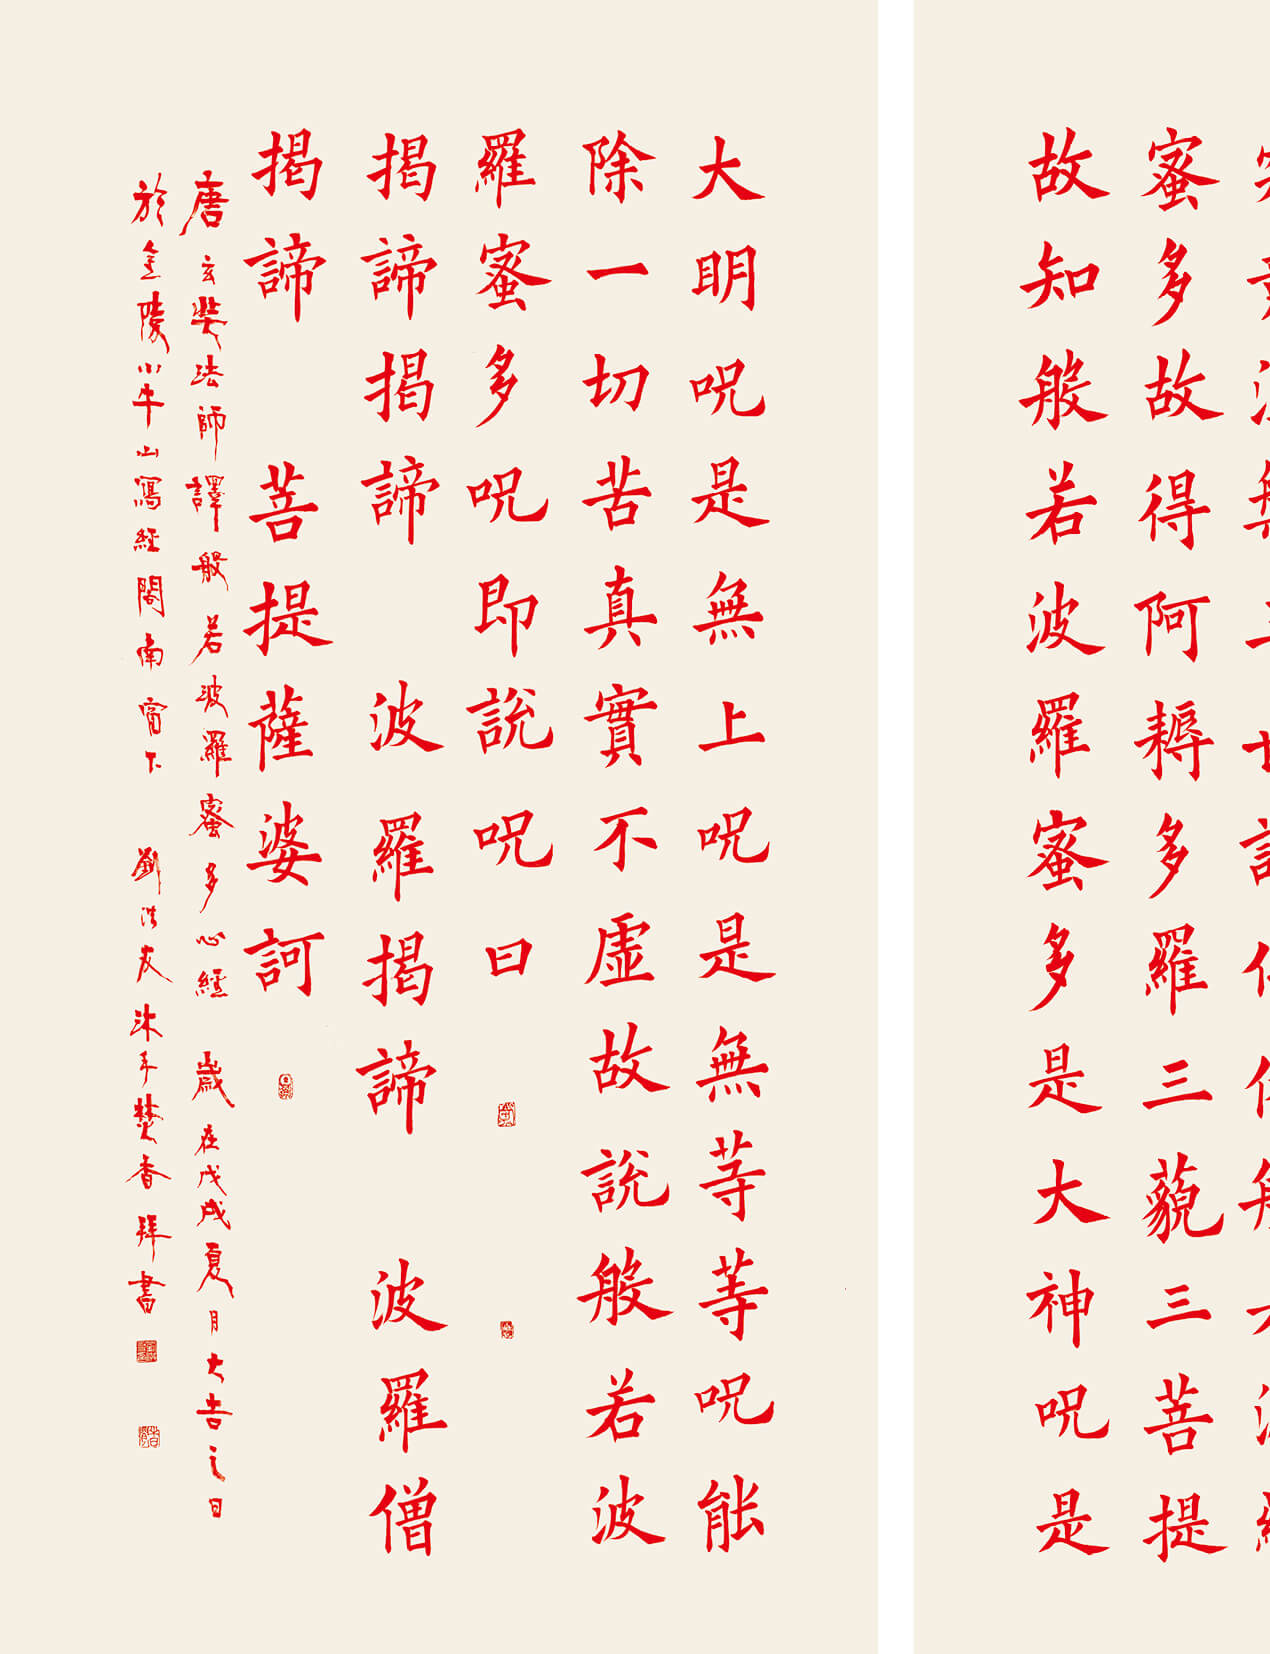 蜜多故得阿耨多羅三藐三菩提
故知般若波羅蜜多是大神呪是
大明呪是無上呪是無等等呪能
除一切苦真實不虛故說般若波
羅蜜多呪即說呪曰
揭諦揭諦 波羅揭諦 波羅僧
揭諦 菩提薩婆訶
唐玄奘法師譯般若波羅蜜多心經 歲在戊戌夏月大吉之日
於金陵小牛山寫經閣南窗下 劉浩友沐手焚香拜書